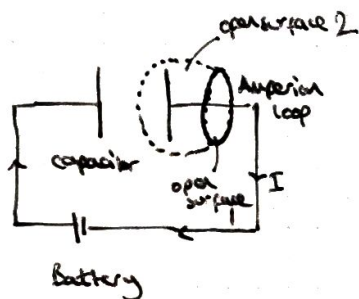 open surface 2
Amperian
loop
capacitor
open
surface
I
Battery